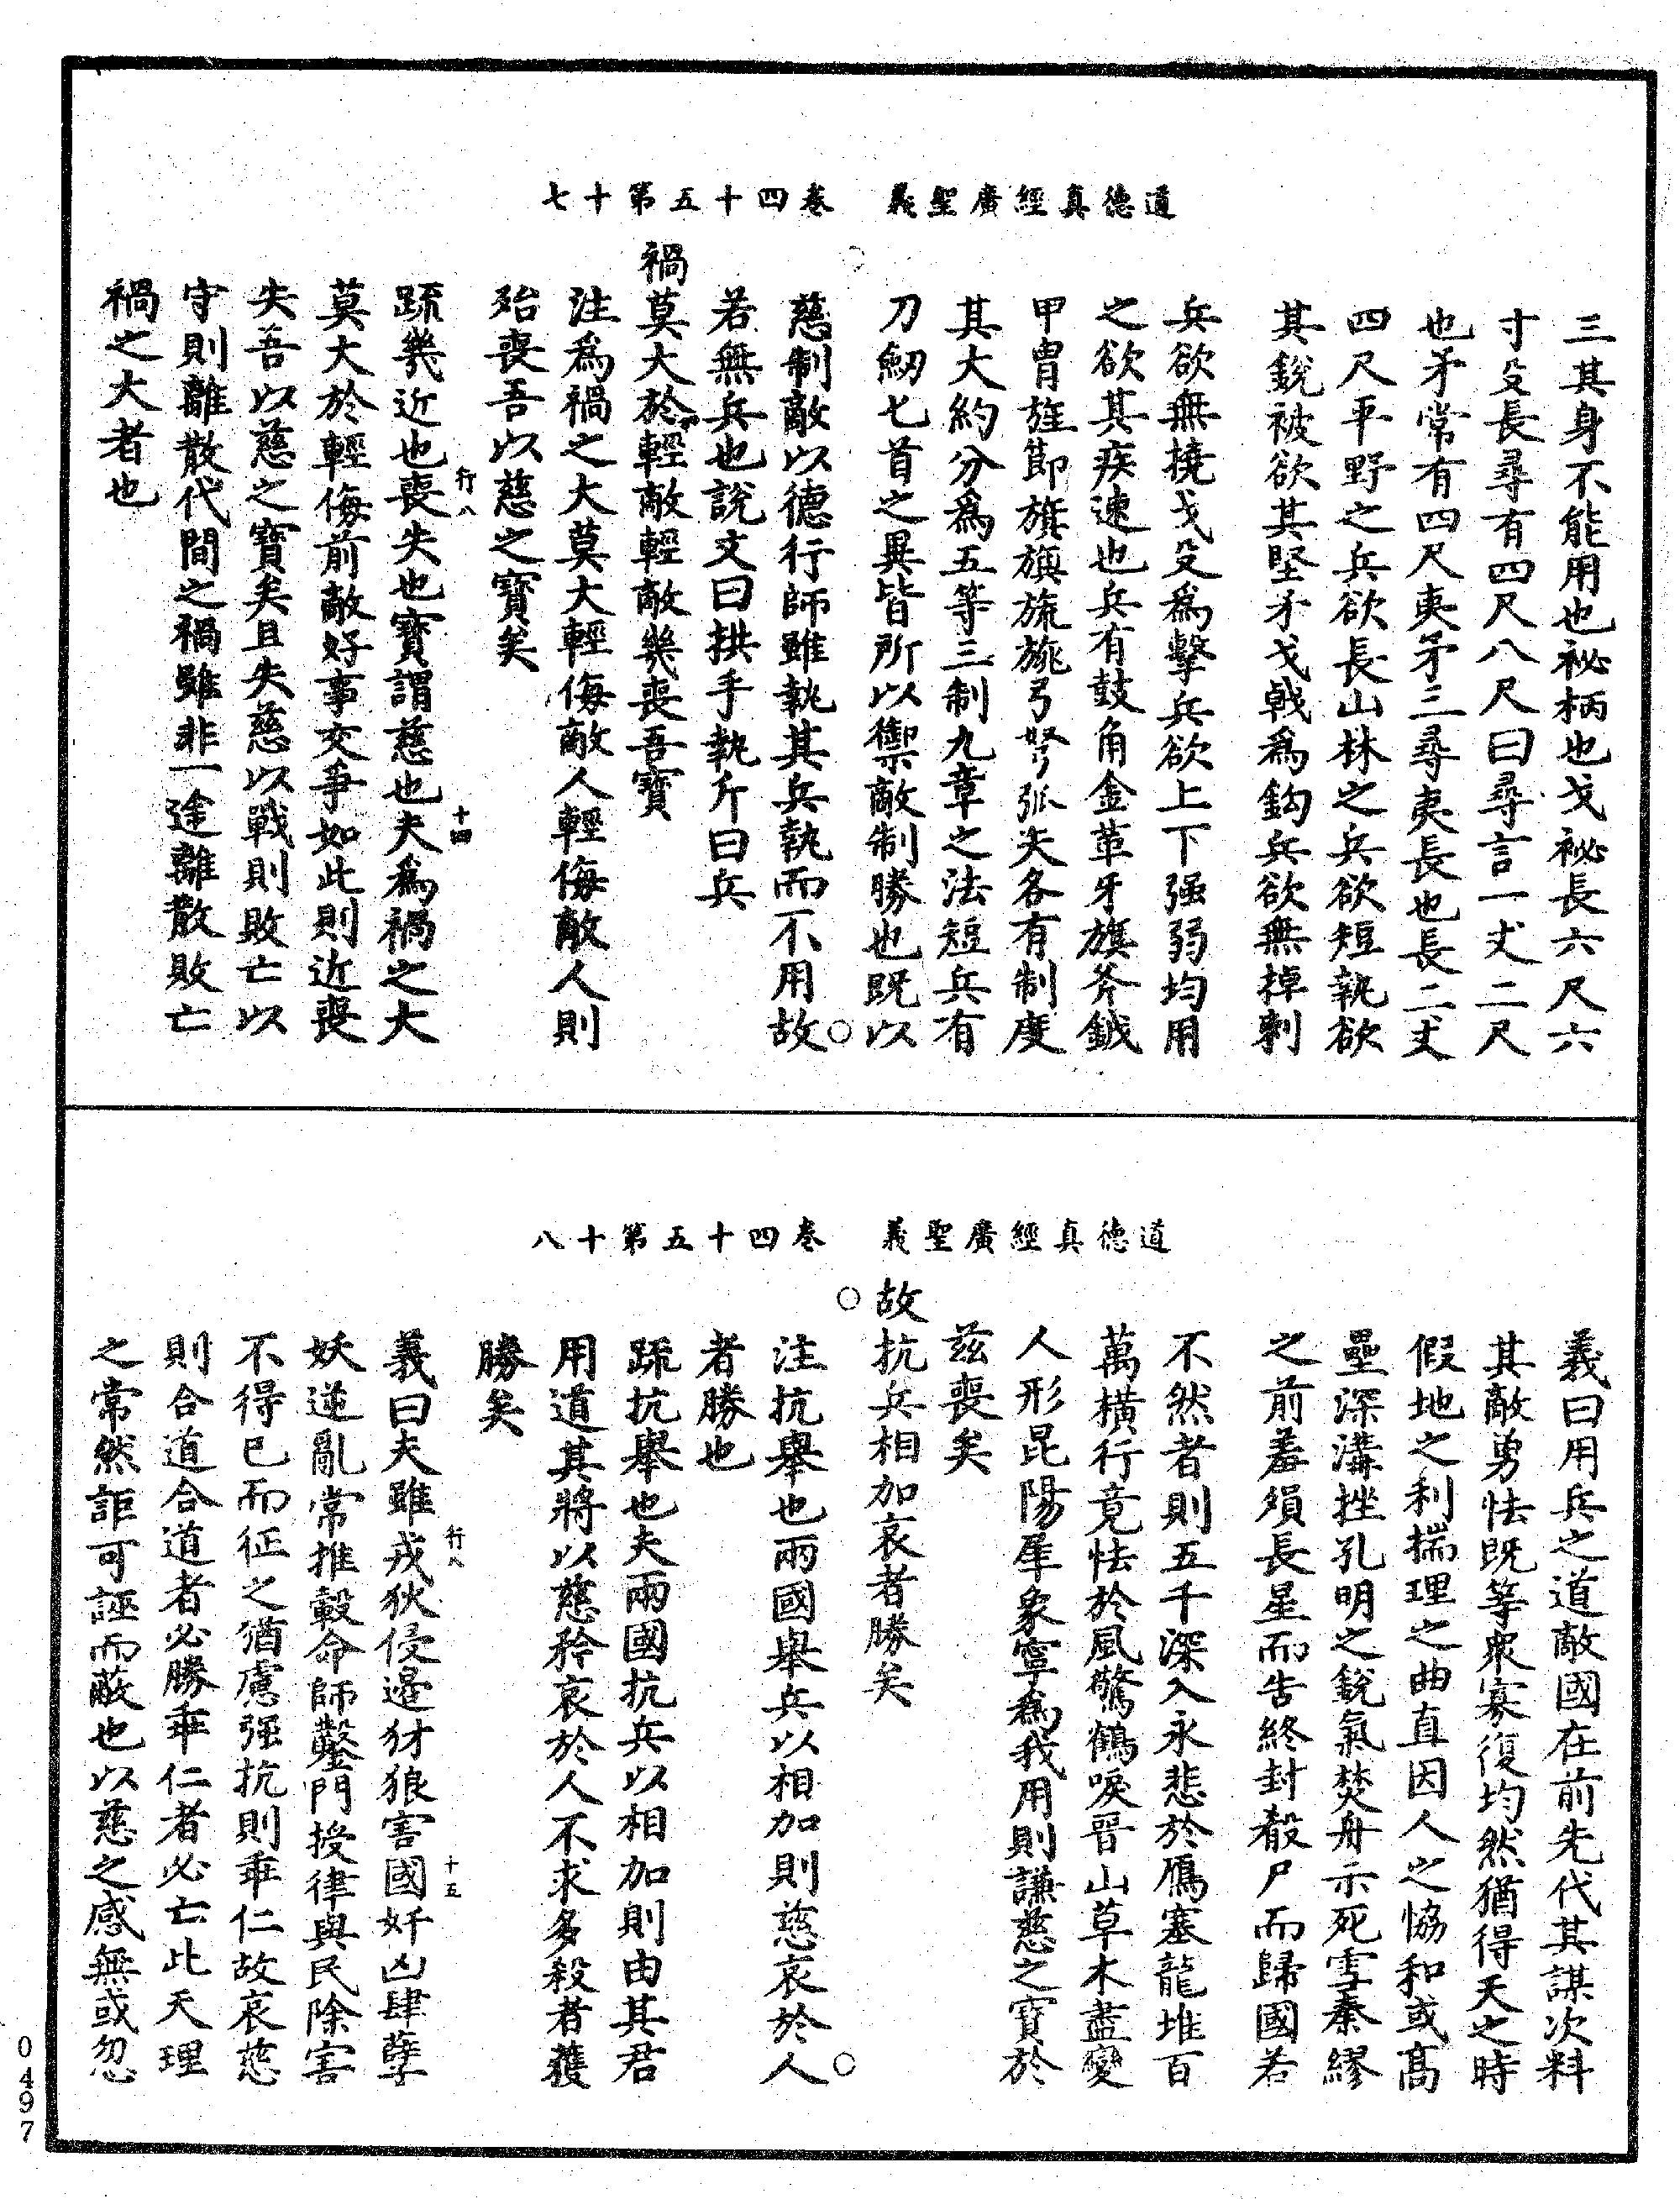 道德真經廣聖義　卷四十五第十七
三其身不能用也柲柄也戈柲長六尺六
寸殳長尋有四尺八尺曰尋言一丈二尺
也矛常有四尺夷矛三尋夷長也長二丈
四尺平野之兵欲長山林之兵欲短執欲
其銳被欲其堅矛戈戟為鈎兵欲無掉刺
兵欲無撓戈殳為擊兵欲上下强弱均用
之欲其疾速也兵有鼓角金革牙旗斧鉞
甲冑旌節旗旟旒旐弓弩弧矢各有制度
其大約分為五等三制九章之法短兵有
刀劒匕首之異皆所以禦敵制勝也既以
慈制敵以德行師雖執其兵執而不用故
若無兵也說文曰拱手執斤曰兵
禍莫大於輕敵輕敵幾喪吾寶
注為禍之大莫大輕侮敵人輕侮敵人則
殆喪吾以慈之寶矣
疏幾近也喪失也寶謂慈也夫為禍之大
行八
十四
莫大於輕侮前敵好事交爭如此則近喪
失吾以慈之寶矣且失慈以戰則敗亡以
守則離散代間之禍雖非一途離散敗亡
禍之大者也
道德真經廣聖義　卷四十五第十八
義曰用兵之道敵國在前先代其謀次料
其敵勇怯既等衆寡復均然猶得天之時
假地之利揣理之曲直因人之恊和或高
壘深溝挫孔明之銳氣焚舟示死雪秦繆
之前羞殞長星而告終封殽尸而歸國若
不然者則五千深入永悲於鴈塞龍堆百
萬橫行竟怯於風驚鶴唳晉山草木盡變
人形昆陽犀象寧為我用則謙慈之寶於
茲喪矣
故抗兵相加哀者勝矣
注抗舉也兩國舉兵以相加則慈哀於人
者勝也
疏抗舉也夫兩國抗兵以相加則由其君
用道其將以慈矜哀於人不求多殺者獲
勝矣
義曰夫雖戎狄侵邊豺狼害國奸凶肆孽
行八
十五
妖逆亂常推轂命師鑿門授律與民除害
不得已而征之猶慮强抗則乖仁故哀慈
則合道合道者必勝乖仁者必亡此天理
之常然詎可誣而蔽也以慈之感無或忽
0497